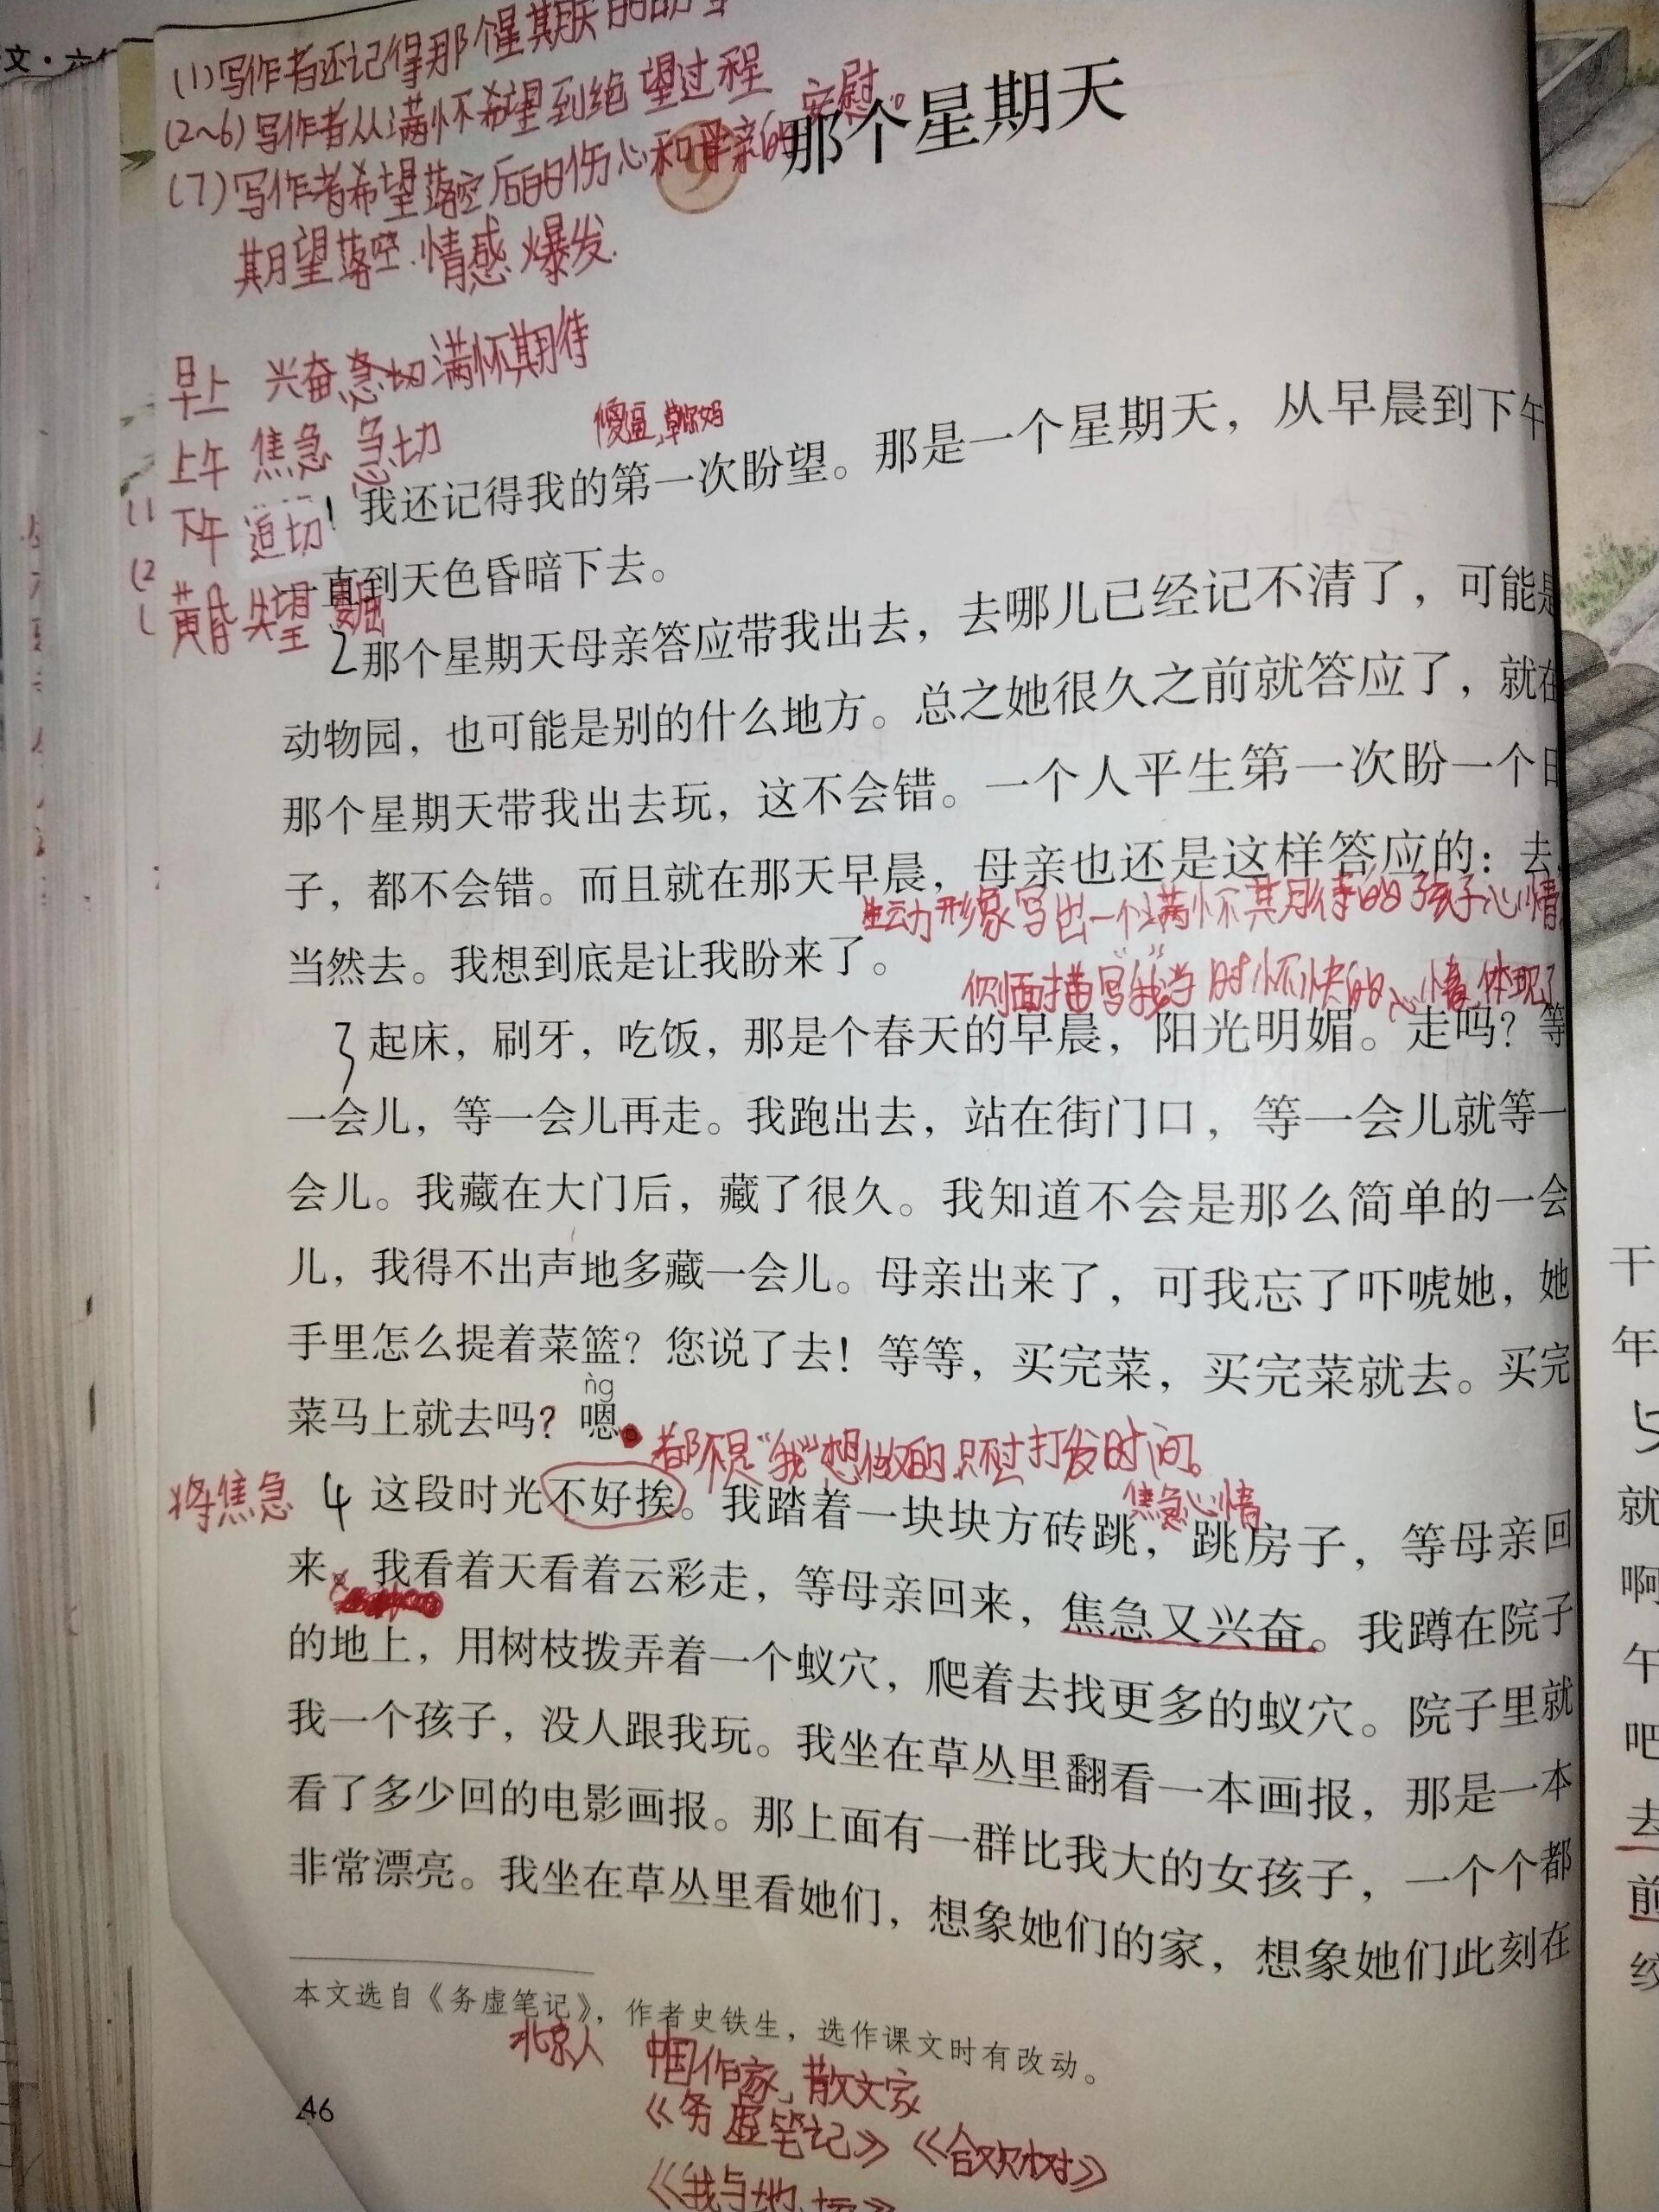 文·六
(1)写作者还记得那个星期天的
(2~6)写作者从满怀希望到绝望过程
(7)写作者希望落空后的伤心和母亲的安慰。
期望落空.情感爆发.
9 那个星期天
早上 兴奋急切满怀期待
上午 焦急 急切
下午 追切
黄昏 失望 委屈
傻逼,草你妈
1 我还记得我的第一次盼望。那是一个星期天，从早晨到下午
一直到天色昏暗下去。
2 那个星期天母亲答应带我出去，去哪儿已经记不清了，可能是
动物园，也可能是别的什么地方。总之她很久之前就答应了，就在
那个星期天带我出去玩，这不会错。一个人平生第一次盼一个日
子，都不会错。而且就在那天早晨，母亲也还是这样答应的：去，
生动形象写出一个满怀期待的孩子心情
当然去。我想到底是让我盼来了。
侧面描写“我”当时怀快的心情,体现了
3 起床，刷牙，吃饭，那是个春天的早晨，阳光明媚。走吗？等
一会儿，等一会儿再走。我跑出去，站在街门口，等一会儿就等一
会儿。我藏在大门后，藏了很久。我知道不会是那么简单的一会
儿，我得不出声地多藏一会儿。母亲出来了，可我忘了吓唬她，她
手里怎么提着菜篮？您说了去！等等，买完菜，买完菜就去。买完
ǹg
菜马上就去吗？嗯。
都不是“我”想做的,只不过打发时间。
将焦急
4 这段时光不好挨。我踏着一块块方砖跳，跳房子，等母亲回
焦急心情
来。我看着天看着云彩走，等母亲回来，焦急又兴奋。我蹲在院子
的地上，用树枝拨弄着一个蚁穴，爬着去找更多的蚁穴。院子里就
我一个孩子，没人跟我玩。我坐在草丛里翻看一本画报，那是一本
看了多少回的电影画报。那上面有一群比我大的女孩子，一个个都
非常漂亮。我坐在草丛里看她们，想象她们的家，想象她们此刻在
本文选自《务虚笔记》，作者史铁生，选作课文时有改动。
北京人 中国作家,散文家
《务虚笔记》《合欢树》
《我与地坛》
46
干
年
就
啊
午
吧
去
前
绞